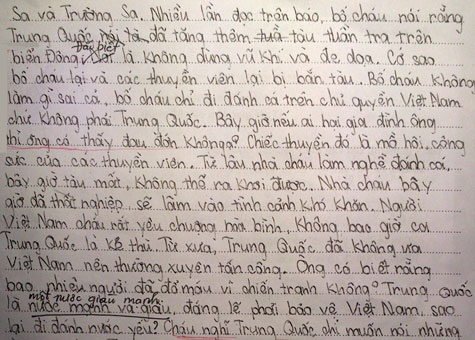 Sa và Trường Sa. Nhiều lần đọc trên báo, bố cháu nói rằng
Trung Quốc nói là đã tăng thêm tàu tuần tra trên
Đặc biệt
biển Đông, là không dùng vũ khí và đe dọa. Cớ sao
bố cháu lại và các thuyền viên lại bị bắn tàu. Bố cháu không
làm gì sai cả, bố cháu chỉ đi đánh cá trên chủ quyền Việt Nam
chứ không phải Trung Quốc. Bây giờ nếu ai hại gia đình ông
thì ông có thấy đau đớn không? Chiếc thuyền đó là mồ hôi, công
sức của các thuyền viên. Từ lâu nhà cháu làm nghề đánh cá,
bây giờ tàu mất, không thể ra khơi được. Nhà cháu bây
giờ đã thất nghiệp sẽ lâm vào tình cảnh khó khăn. Người
Việt Nam cháu rất yêu chuộng hòa bình, không bao giờ coi
Trung Quốc là kẻ thù. Từ xưa, Trung Quốc đã không ưa
Việt Nam nên thường xuyên tấn công. Ông có biết rằng
bao nhiêu người đã đổ máu vì chiến tranh không? Trung Quốc
một nước giàu mạnh
là nước mạnh và giàu, đáng lẽ phải bảo vệ Việt Nam, sao
lại đi đánh nước yếu? Cháu nghĩ Trung Quốc chỉ muốn nói những